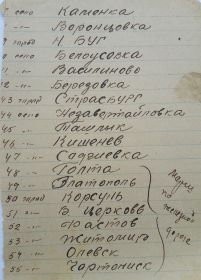 село Каменка
-"- Воронцовка
город Н. БУГ
село Белоусовка
-"- Василиново
42 -"- Бередовка
43 город СТРАСБУРГ
44 село Незавертайловка
45 -"- Ташлык
46 -"- Кишенев
47 -"- Садзиевка
48 -"- Голта
49 -"- Златополь
50 город Корсунь
51 -"- Б. Церковь
52 -"- Фастов
53 -"- Житомир
54 -"- Олевск
55 -"- Чорторийск
Марш по железной дороге